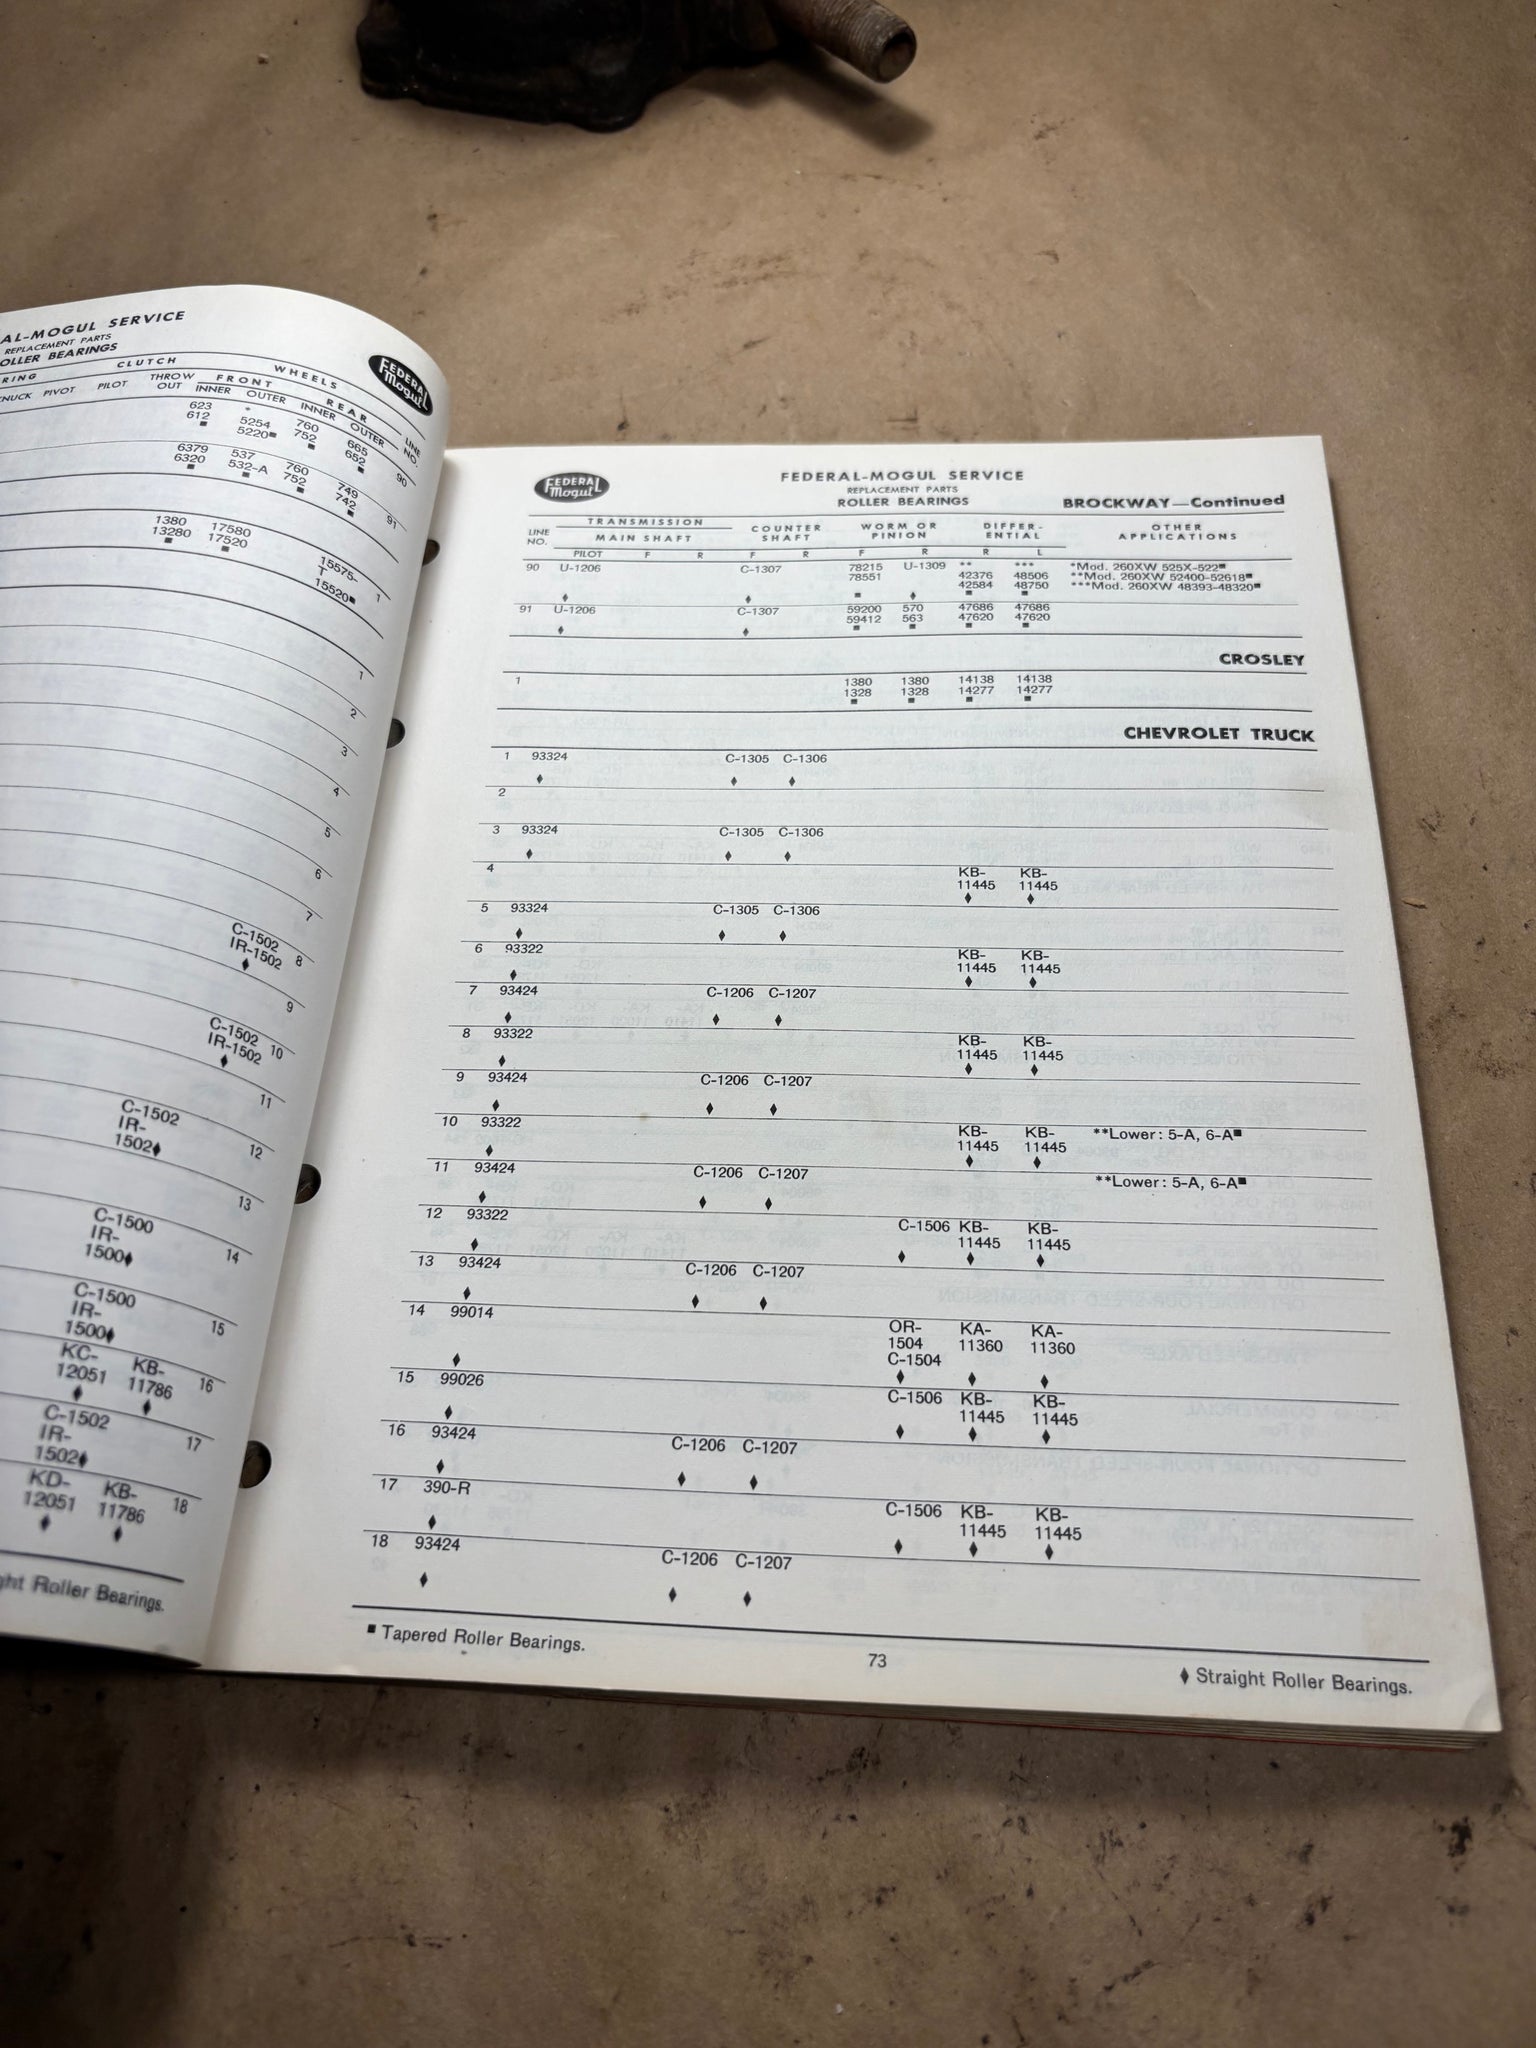 AL-MOGUL SERVICE
REPLACEMENT PARTS
OLLER BEARINGS
FEDERAL
Mogul
RING CLUTCH WHEELS
FRONT REAR
KNUCK PIVOT PILOT THROW OUT INNER OUTER INNER OUTER LINE NO.
623 * 760 665 90
612 5254 752 652
■ 5220■ ■ ■
6379 537 760 749 91
6320 532-A 752 742
■ ■ ■ ■
1380 17580 15575- 1
13280 17520 T
■ ■ 15520■
1
2
3
4
5
6
7
C-1502 8
IR-1502
♦
9
C-1502 10
IR-1502
♦
11
C-1502 12
IR-
1502♦
13
C-1500 14
IR-
1500♦
C-1500 15
IR-
1500♦
KC- KB- 16
12051 11786
♦ ♦
C-1502 17
IR-
1502♦
KD- KB- 18
12051 11786
♦ ♦
ght Roller Bearings.
FEDERAL
Mogul
FEDERAL-MOGUL SERVICE
REPLACEMENT PARTS
ROLLER BEARINGS
BROCKWAY—Continued
TRANSMISSION COUNTER SHAFT WORM OR PINION DIFFER-ENTIAL OTHER APPLICATIONS
LINE NO. MAIN SHAFT
PILOT F R F R F R R L
90 U-1206 C-1307 78215 U-1309 ** *** *Mod. 260XW 525X-522■
78551 42376 48506 **Mod. 260XW 52400-52618■
42584 48750 ***Mod. 260XW 48393-48320■
♦ ♦ ■ ♦ ■ ■
91 U-1206 C-1307 59200 570 47686 47686
59412 563 47620 47620
♦ ♦ ■ ■ ■ ■
CROSLEY
1 1380 1380 14138 14138
1328 1328 14277 14277
■ ■ ■ ■
CHEVROLET TRUCK
1 93324 C-1305 C-1306
♦ ♦ ♦
2
3 93324 C-1305 C-1306
♦ ♦ ♦
4 KB- KB-
11445 11445
♦ ♦
5 93324 C-1305 C-1306
♦ ♦ ♦
6 93322 KB- KB-
11445 11445
♦ ♦ ♦
7 93424 C-1206 C-1207
♦ ♦ ♦
8 93322 KB- KB-
11445 11445
♦ ♦ ♦
9 93424 C-1206 C-1207
♦ ♦ ♦
10 93322 KB- KB- **Lower: 5-A, 6-A■
11445 11445
♦ ♦ ♦
11 93424 C-1206 C-1207 **Lower: 5-A, 6-A■
♦ ♦ ♦
12 93322 C-1506 KB- KB-
11445 11445
♦ ♦ ♦ ♦
13 93424 C-1206 C-1207
♦ ♦ ♦
14 99014 OR- KA- KA-
1504 11360 11360
C-1504
♦ ♦ ♦ ♦
15 99026 C-1506 KB- KB-
11445 11445
♦ ♦ ♦ ♦
16 93424 C-1206 C-1207
♦ ♦ ♦
17 390-R C-1506 KB- KB-
11445 11445
♦ ♦ ♦ ♦
18 93424 C-1206 C-1207
♦ ♦ ♦
■ Tapered Roller Bearings.
73
♦ Straight Roller Bearings.